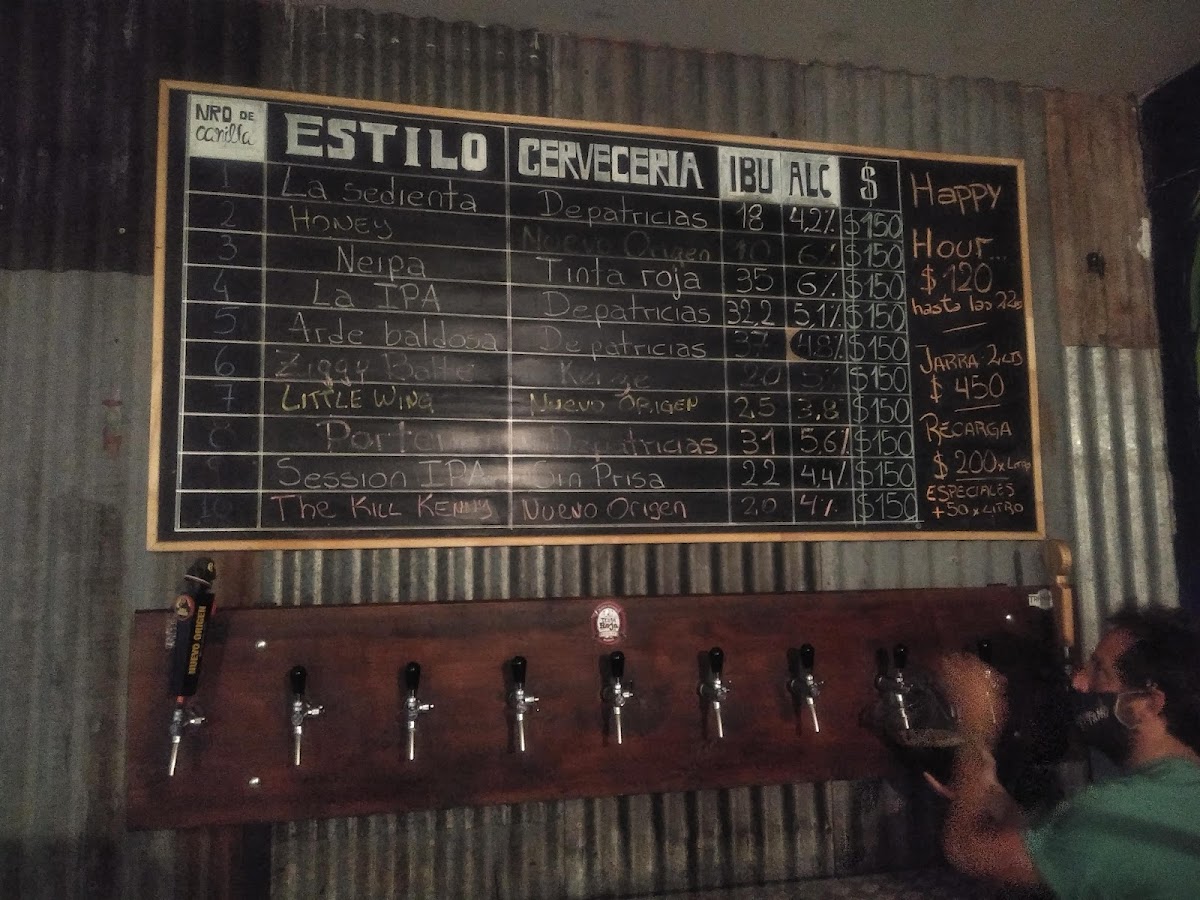 NRO DE canilla ESTILO CERVECERIA IBU ALC $
1 La sedienta Depatricias 18 4,2% $150
2 HONEY Nuevo Origen 10 6% $150
3 Neipa Tinta roja 35 6% $150
4 La IPA Depatricias 32,2 5,1% $150
5 Arde baldosa Depatricias 37 4,8% $150
6 Ziggy 20 5% $150
7 LITTLE WING NUEVO ORIGEN 2,5 3,8 $150
8 Porter Depatricias 31 5,6% $150
9 Session IPA Sin Prisa 22 4,4% $150
10 The KILL KENNY NUEVO ORIGEN 20 4% $150
Happy
Hour...
$ 120
hasta las 22hs
JARRA 2 LTS
$ 450
RECARGA
$ 200 x LITRO
ESPECIALES
+50 x LITRO
NUEVO ORIGEN
Roja